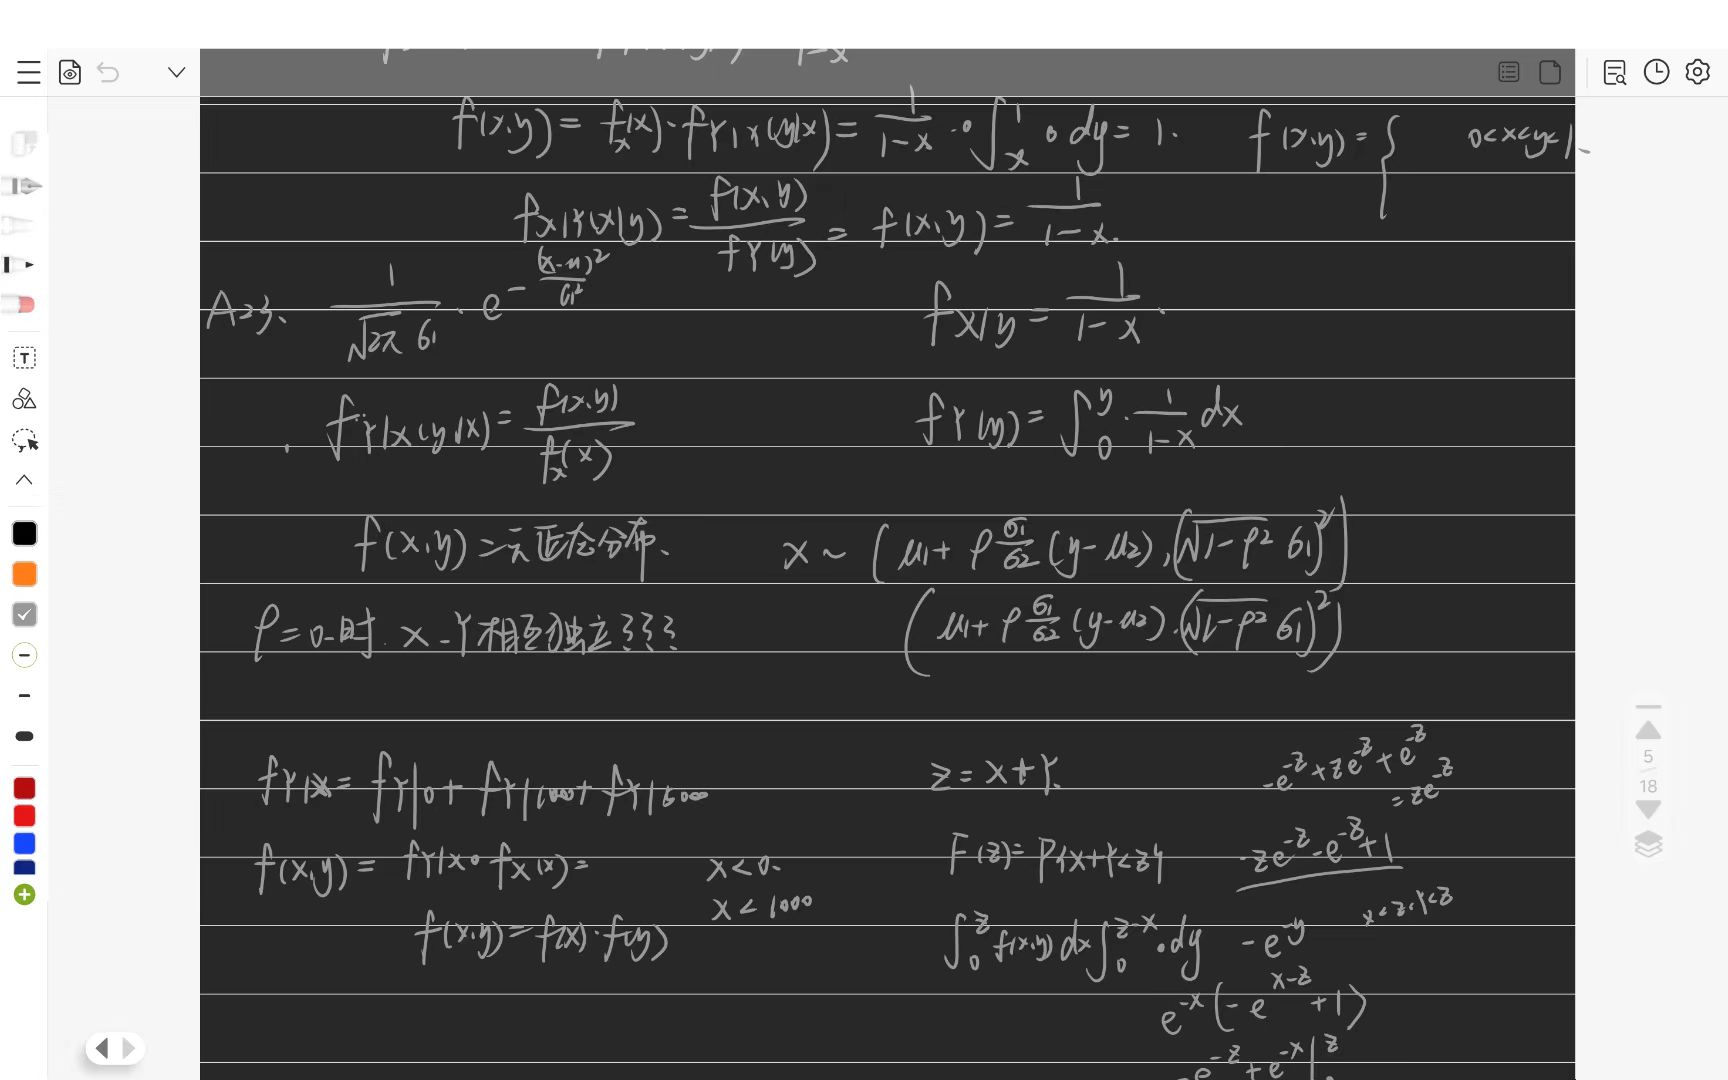 1-x
f(x,y) = f_x(x)·f_{Y|X}(y|x) = \frac{1}{1-x} · ∫_x^1 · dy = 1.
f(x,y) = { 0<x<y<1
f_{X|Y}(x|y) = \frac{f(x,y)}{f_Y(y)} = f(x,y) = \frac{1}{1-x}.
A23、 \frac{1}{\sqrt{2π} 6_1} · e^{-\frac{(x-u)^2}{6_1^2}}
f_{X|y} = \frac{1}{1-x}.
f_{Y|X}(y|x) = \frac{f(x,y)}{f_x(x)}
f_Y(y) = ∫_0^y · \frac{1}{1-x} dx
f(x,y) = 二元正态分布、
x ~ (μ_1 + ρ\frac{σ_1}{σ_2}(y-μ_2), (\sqrt{1-ρ^2} 6_1)^2)
ρ=0时. x-Y相互独立???
(μ_1 + ρ\frac{6_1}{6_2}(y-μ_2). (\sqrt{1-ρ^2} 6_1)^2)
f_{Y|X} = f_{Y|0} + f_{Y|1000} + f_{Y|5000}
z = x+Y.
-e^{-z} + ze^{-z} + e^{-z}
= ze^{-z}
f(x,y) = f_{Y|X} · f_X(x) =
x<0.
x<1000
F(z) = P{x+Y<z}
-ze^{-z} - e^{-z} + 1
x<z.Y<z
f(x,y) = f(x)·f(y)
∫_0^z f(x,y) dx ∫_0^{z-x} · dy
-e^{-y}
e^{-x}(-e^{x-z} + 1)
-e^{-z} + e^{-x} |^z
5
18
T